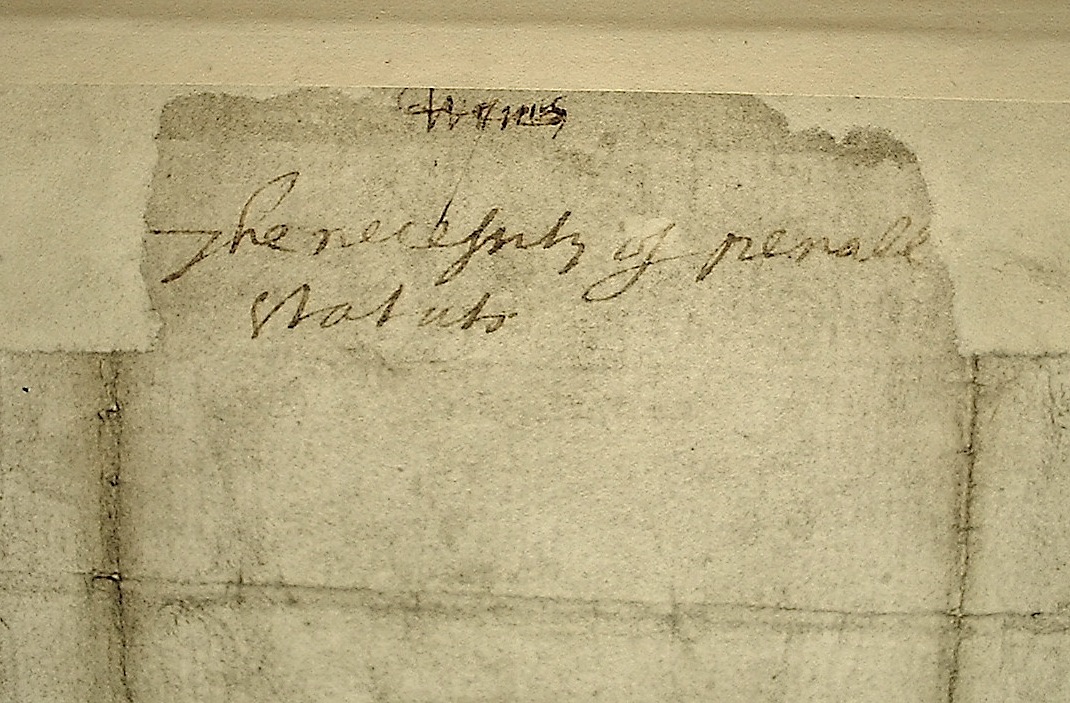 The necessity of penall
statuts